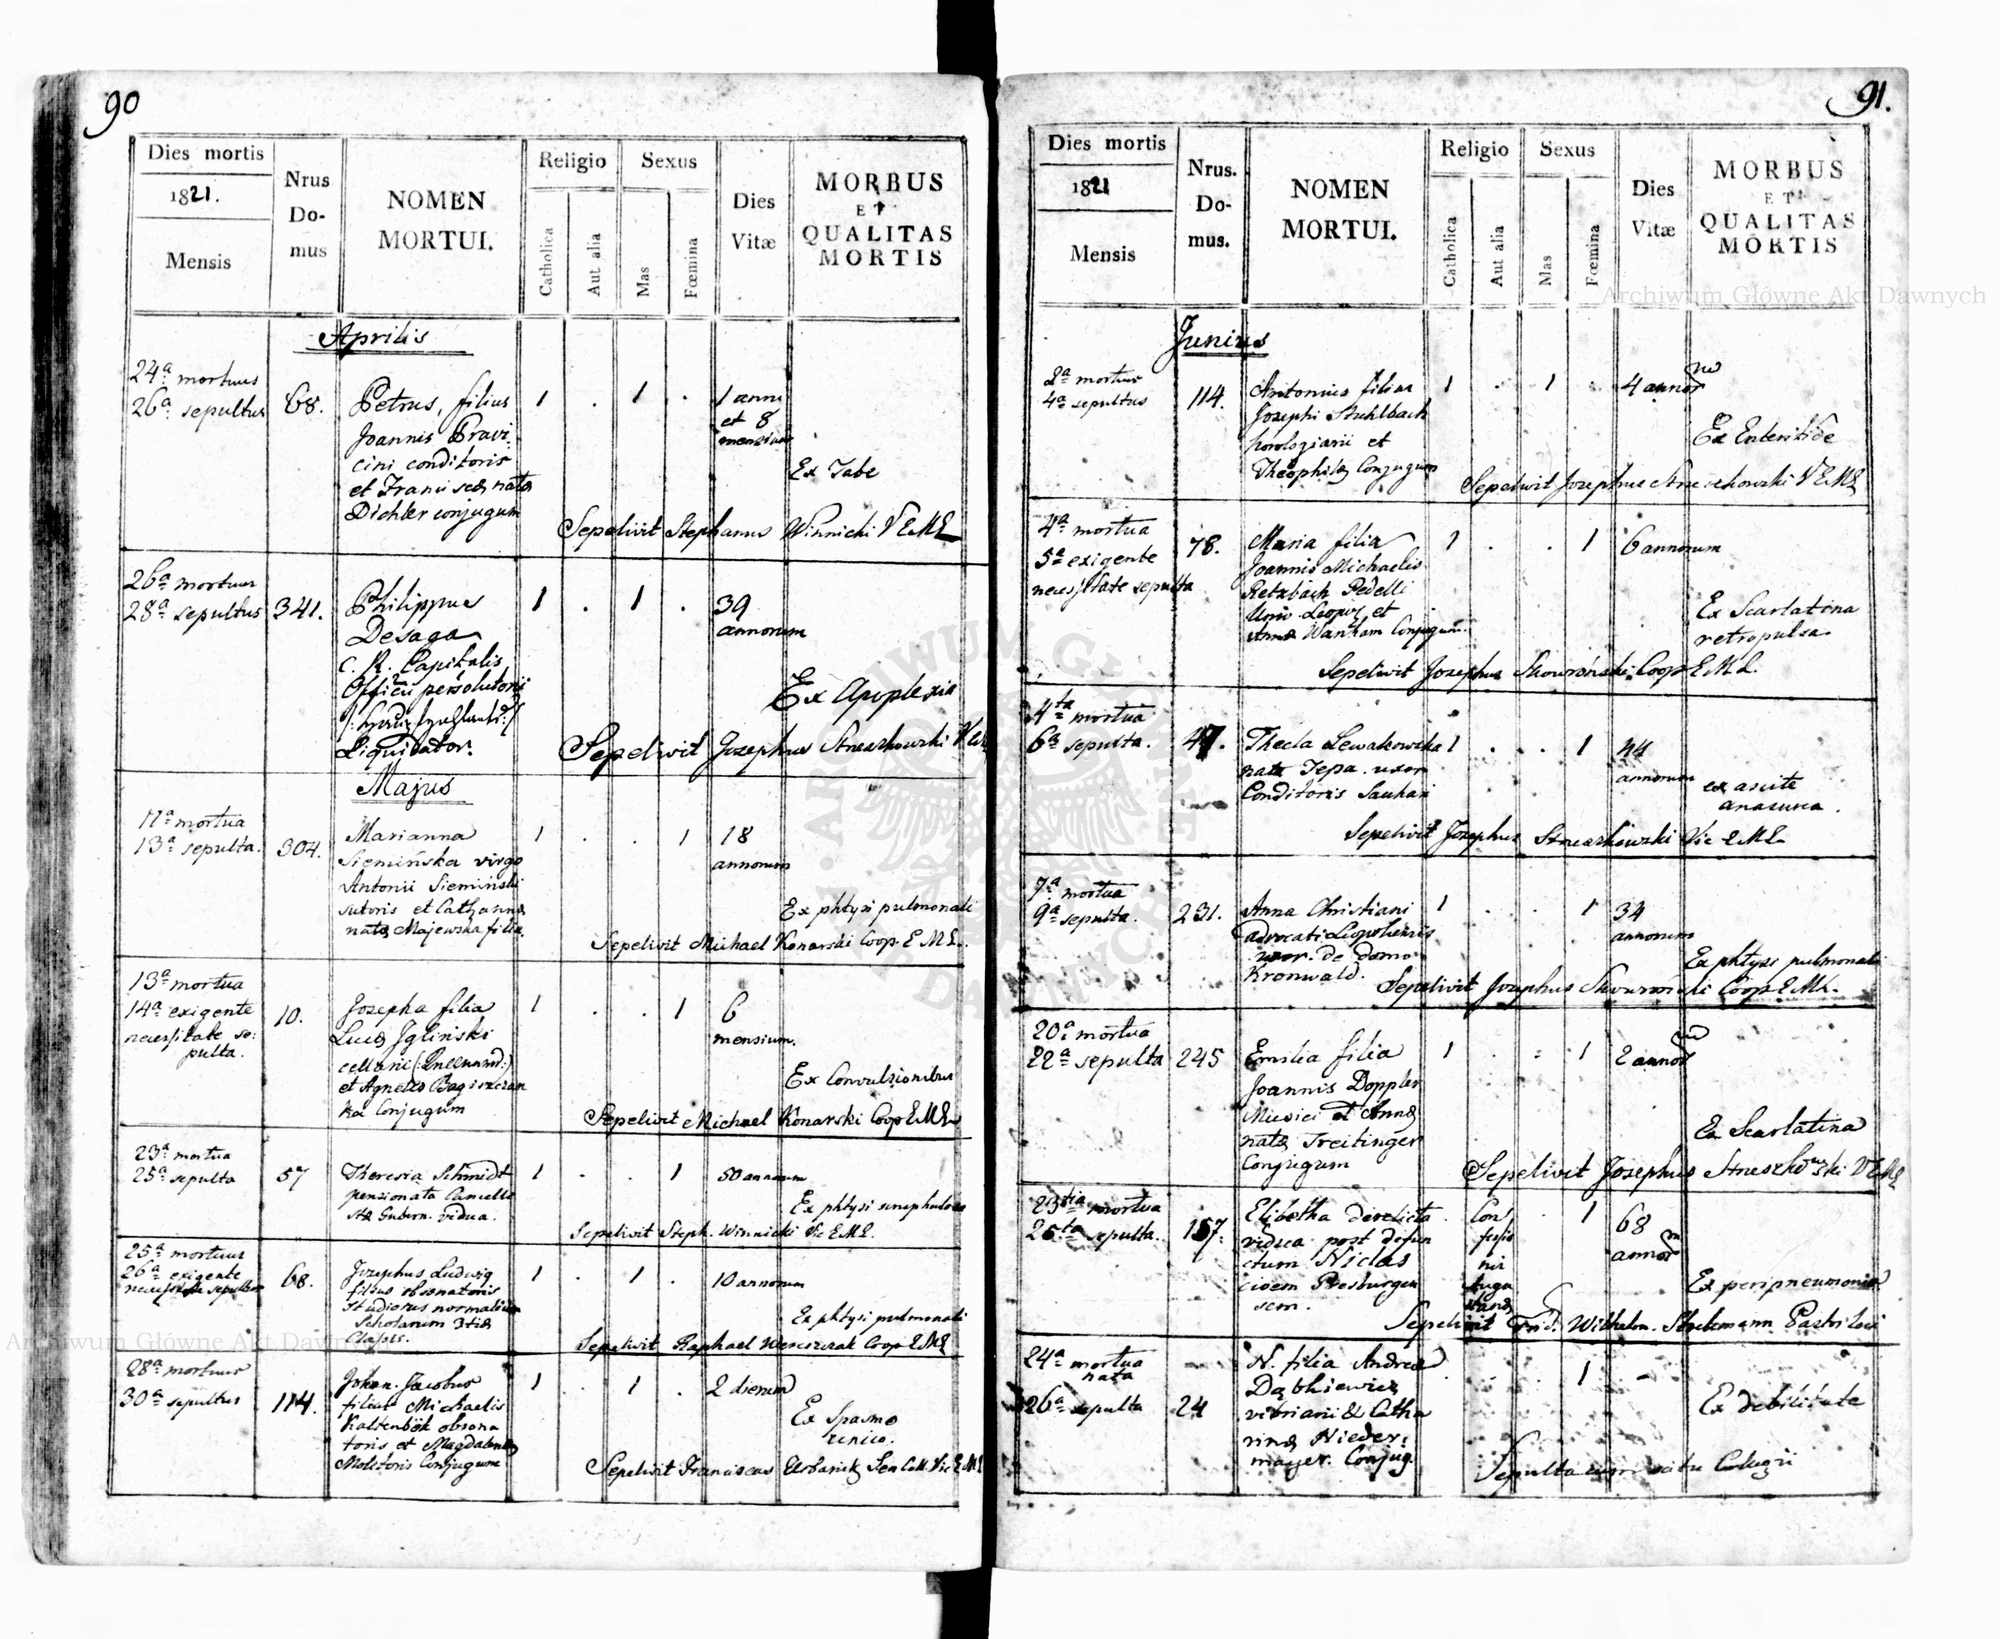 90
Dies mortis
1821.
Mensis
Nrus
Do-
mus
NOMEN
MORTUI.
Religio
Catholica
Aut alia
Sexus
Mas
Fœmina
Dies
Vitæ
MORBUS
ET
QUALITAS
MORTIS
Aprilis
24ª mortuus
26ª sepultus
68.
Petrus, filius
Joannis Pravi-
cini conditoris
et Franciscæ natæ
Dichler conjugum
1 . 1 .
1 anni
et 8
mensium
Ex Tabe
Sepelivit Stephanus Winnicki V E M L
26ª mortuus
28ª sepultus
341.
Philippus
Desaga
C. R. Capitalis
Officii persolutorii
Liquidator.
1 . 1 .
39
annorum
Ex Apoplexia
Sepelivit Josephus
Majus
11ª mortua
13ª sepulta.
304.
Marianna
Siemińska virgo
Antonii Siemiński
sutoris et Catharinæ
natæ Majewska filia.
1 . . 1
18
annorum
Ex phtysi pulmonali
Sepelivit Michael Konarski Coop E M L.
13ª mortua
14ª exigente
necessitate se:
pulta.
10.
Josepha filia
Lucæ Jgliński
et Agnetis
Conjugum
1 . . 1
6
mensium.
Ex Convulsionibus
Sepelivit Michael Konarski Coop E M L
23ª mortua
25ª sepulta
57
Theresia Schmidt
pensionata Cancelli
stæ Gubern. vidua.
1 . . 1
50 annorum
Ex phtysi
Sepelivit Steph. Winnicki Vic E M L.
25ª mortuus
26ª exigente
necessitate sepultus
68.
Josephus Ludwig
filius obsonatoris
Studiosus normalium
Scholarum 3tiæ
Classis.
1 . 1 .
10 annorum
Ex phtysi pulmonali
Sepelivit Raphael Coop E M L
28ª mortuus
30ª sepultus
114.
Johan. Jacobus
filius Michaelis
Kaltenbök obsona
toris et Magdalenæ
Molitoris Conjugum
1 . 1 .
2 dierum
Ex Spasmo
Sepelivit Franciscus Urbanik Vic E M L
91.
Dies mortis
1821
Mensis
Nrus.
Do-
mus.
NOMEN
MORTUI.
Religio
Catholica
Aut alia
Sexus
Mas
Fœmina
Dies
Vitæ
MORBUS
ET
QUALITAS
MORTIS
Junius
2ª mortuus
4ª sepultus
114.
Antonius filius
Josephi Stuhlbach
horologiarii et
Theophilæ Conjugum
1 . 1 .
4 annorum
Ex Enteritide
Sepelivit Josephus V E M L
4ª mortua
5ª exigente
necessitate sepulta
78.
Maria filia
Joannis Michaelis
Retzbach Pedelli
Univ. Leopol et
Annæ Conjugum.
1 . . 1
6 annorum
Ex Scarlatina
retropulsa
Sepelivit Josephus Skowroński Coop E M L.
4ta mortua
6ª sepulta.
47.
Thecla Lewakowska
nata Tepa uxor
Conditoris
1 . . 1
44
annorum
ex ascite
anasarca.
Sepelivit Josephus Vic E M L
7ª mortua
9ª sepulta.
231.
Anna Christiani
advocati Leopoliensis
uxor de domo
Kronwald.
1 . . 1
34
annorum
Ex phtysi pulmonali
Sepelivit Josephus Skowroński Coop E M L.
20ª mortua
22ª sepulta
245
Emilia filia
Joannis Doppler
Musici et Annæ
natæ Treitinger
Conjugum
1 . : 1
2 annorum
Ex Scarlatina
Sepelivit Josephus V E M L
23tia mortua
25ta sepulta.
157.
Elibetha derelicta
vidua post defun
ctum Niclas
civem Presburgen
sem.
Con
fessio
nis
Augu
stanæ
. 1
68
annorum
Ex peripneumonia
Sepelivit Frid. Wilhelm. Stockmann Pastor Loci
24ª mortua
nata
26ª sepulta
24
N. filia Andreæ
Dąbkiewicz
vitriarii & Catha
rinæ Nieder:
mayer Conjug.
1
Ex debilitate
Archiwum Główne Akt Dawnych
Archiwum Główne Akt Dawnych
ARCHIWUM GŁÓWNE AKT DAWNYCH